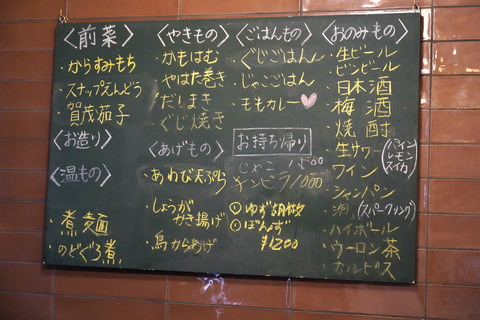 〈前菜〉
・からすみもち
・スナップえんどう
・賀茂茄子
〈お造り〉
〈温もの〉
・煮麺
・のどぐろ煮
〈やきもの〉
・かもはむ
・やはた巻き
・だしまき
・ぐじ焼き
〈あげもの〉
・あわび天ぷら
・しょうが
かき揚げ
・鳥からあげ
〈ごはんもの〉
・ぐじごはん
・じゃこごはん
・ももカレー
お持ち帰り
じゃこ 1500
チンピラ 1000
①ゆず胡椒
②ぽんず
¥1200
〈おのみもの〉
・生ビール
・ビンビール
・日本酒
・梅酒
・焼酎
・生サワー(パイン
レモン
スイカ)
・ワイン
・シャンパン
・(スパークリング)
・ハイボール
・ウーロン茶
・カルピス